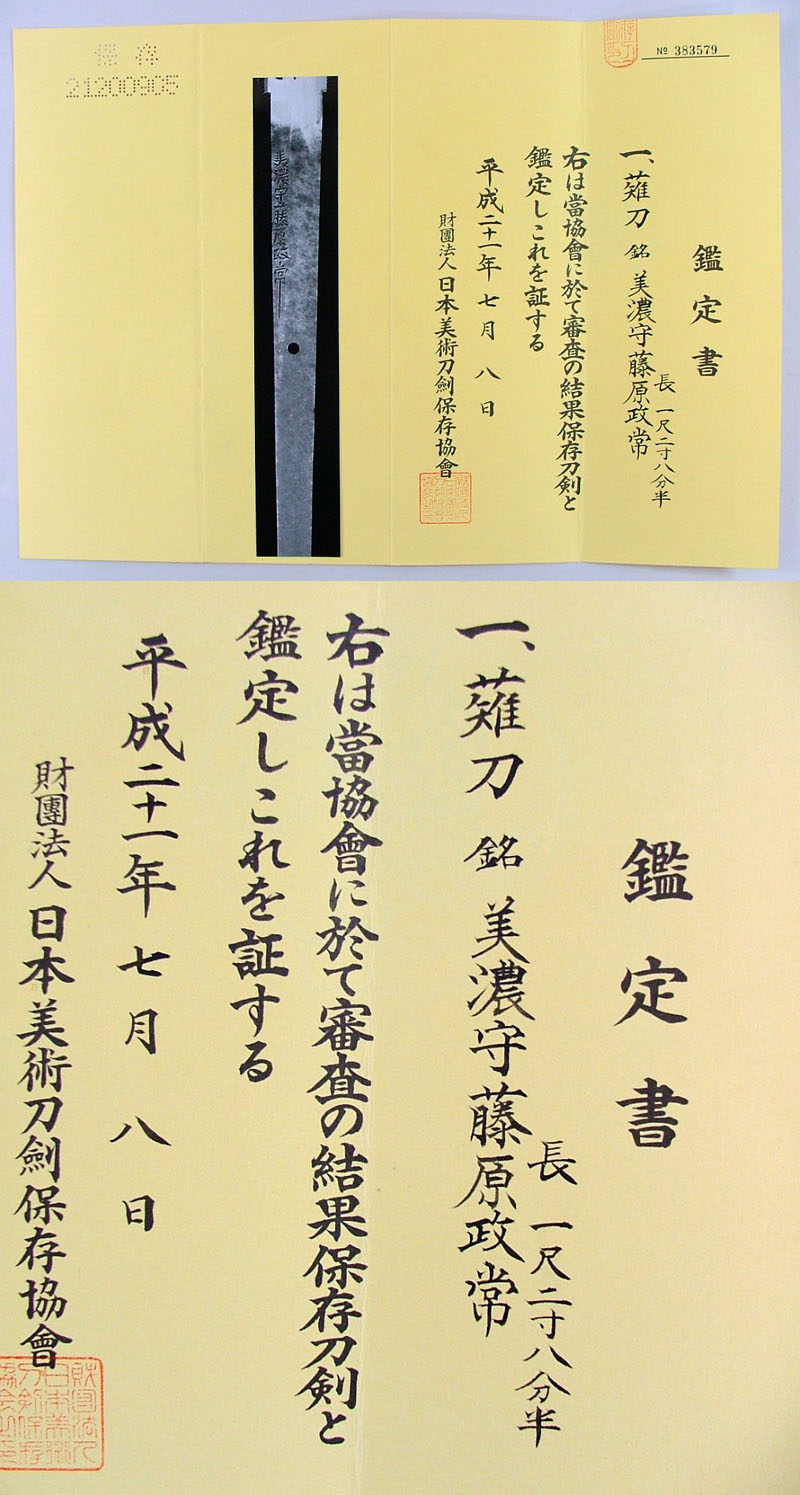 保存
21200905
№ 383579
鑑定書
一、薙刀 銘 美濃守藤原政常
長 一尺二寸八分半
右は當協會に於て審査の結果保存刀剣と
鑑定しこれを証する
平成二十一年 七月 八日
財團法人 日本美術刀劍保存協會
美濃守藤原政常
鑑定書
一、薙刀 銘 美濃守藤原政常
長 一尺二寸八分半
右は當協會に於て審査の結果保存刀剣と
鑑定しこれを証する
平成二十一年 七月 八日
財團法人 日本美術刀劍保存協會